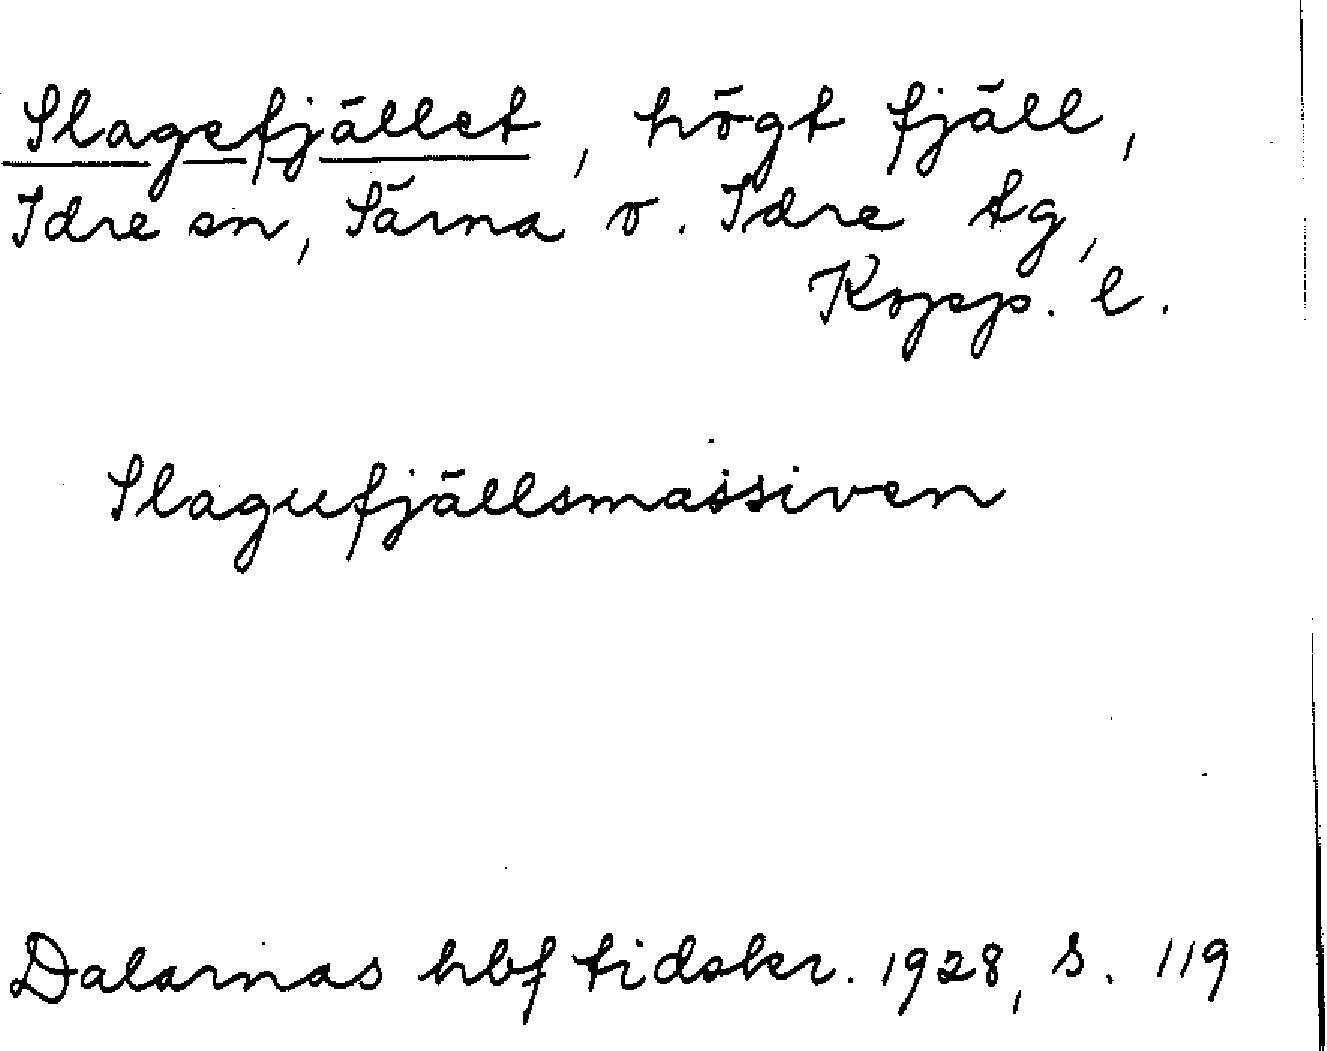 Slagefjället, högt fjäll,
Idre sn, Särna o. Idre tg,
Kopp. l.
Slagufjällsmassiven
Dalarnas hbf tidskr. 1928, s. 119